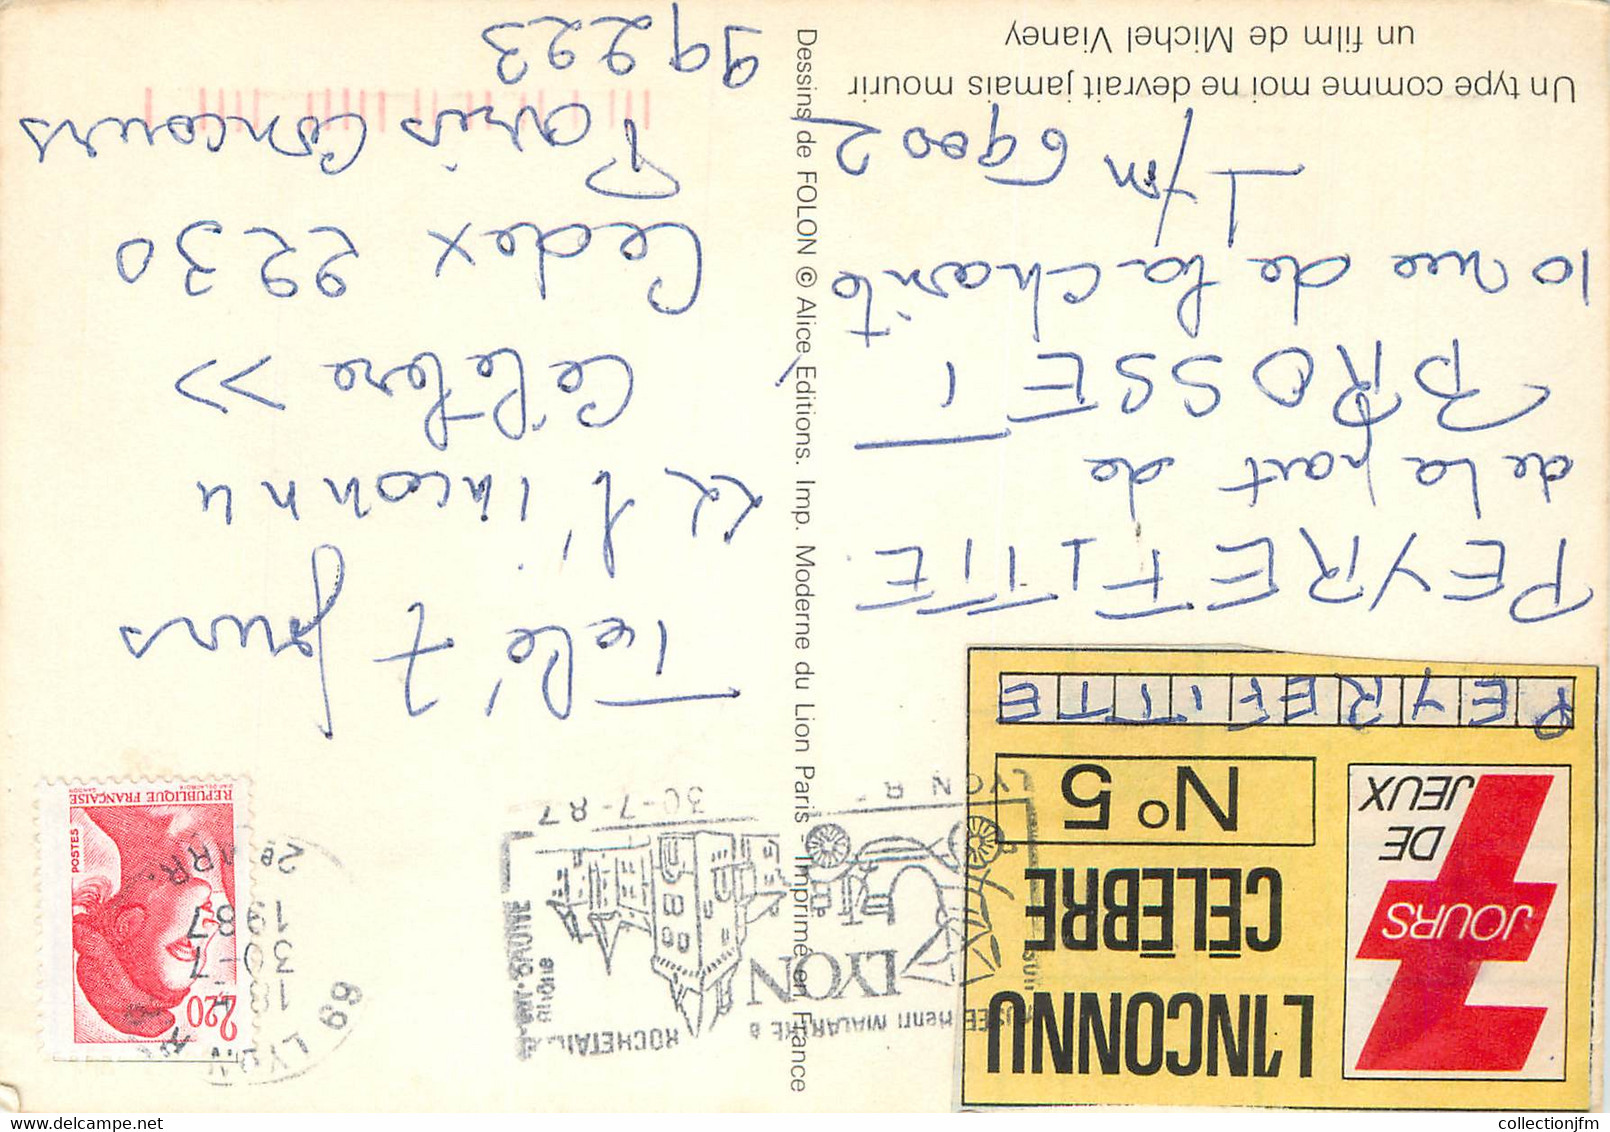 L'INCONNU
CÉLÈBRE
N° 5
7
JOURS
DE
JEUX
PEYREFITTE
PEYREFITTE
de la part de
BROSSET
10 rue de la charité
Lyon 69002
Un type comme moi ne devrait jamais mourir
un film de Michel Vianey
Dessins de FOLON © Alice Editions. Imp. Moderne du Lion Paris. Imprimé en France
MUSÉE Henri MALARTRE à
ROCHETAILLÉE
LYON
LYON
30-7-87
69 LYON
18H
30-7
1987
2e ARR.
2,20
POSTES
RÉPUBLIQUE FRANÇAISE
Télé 7 Jours
« l'inconnu
Célèbre »
Cedex 2230
Paris Concours
99223
collectionjfm